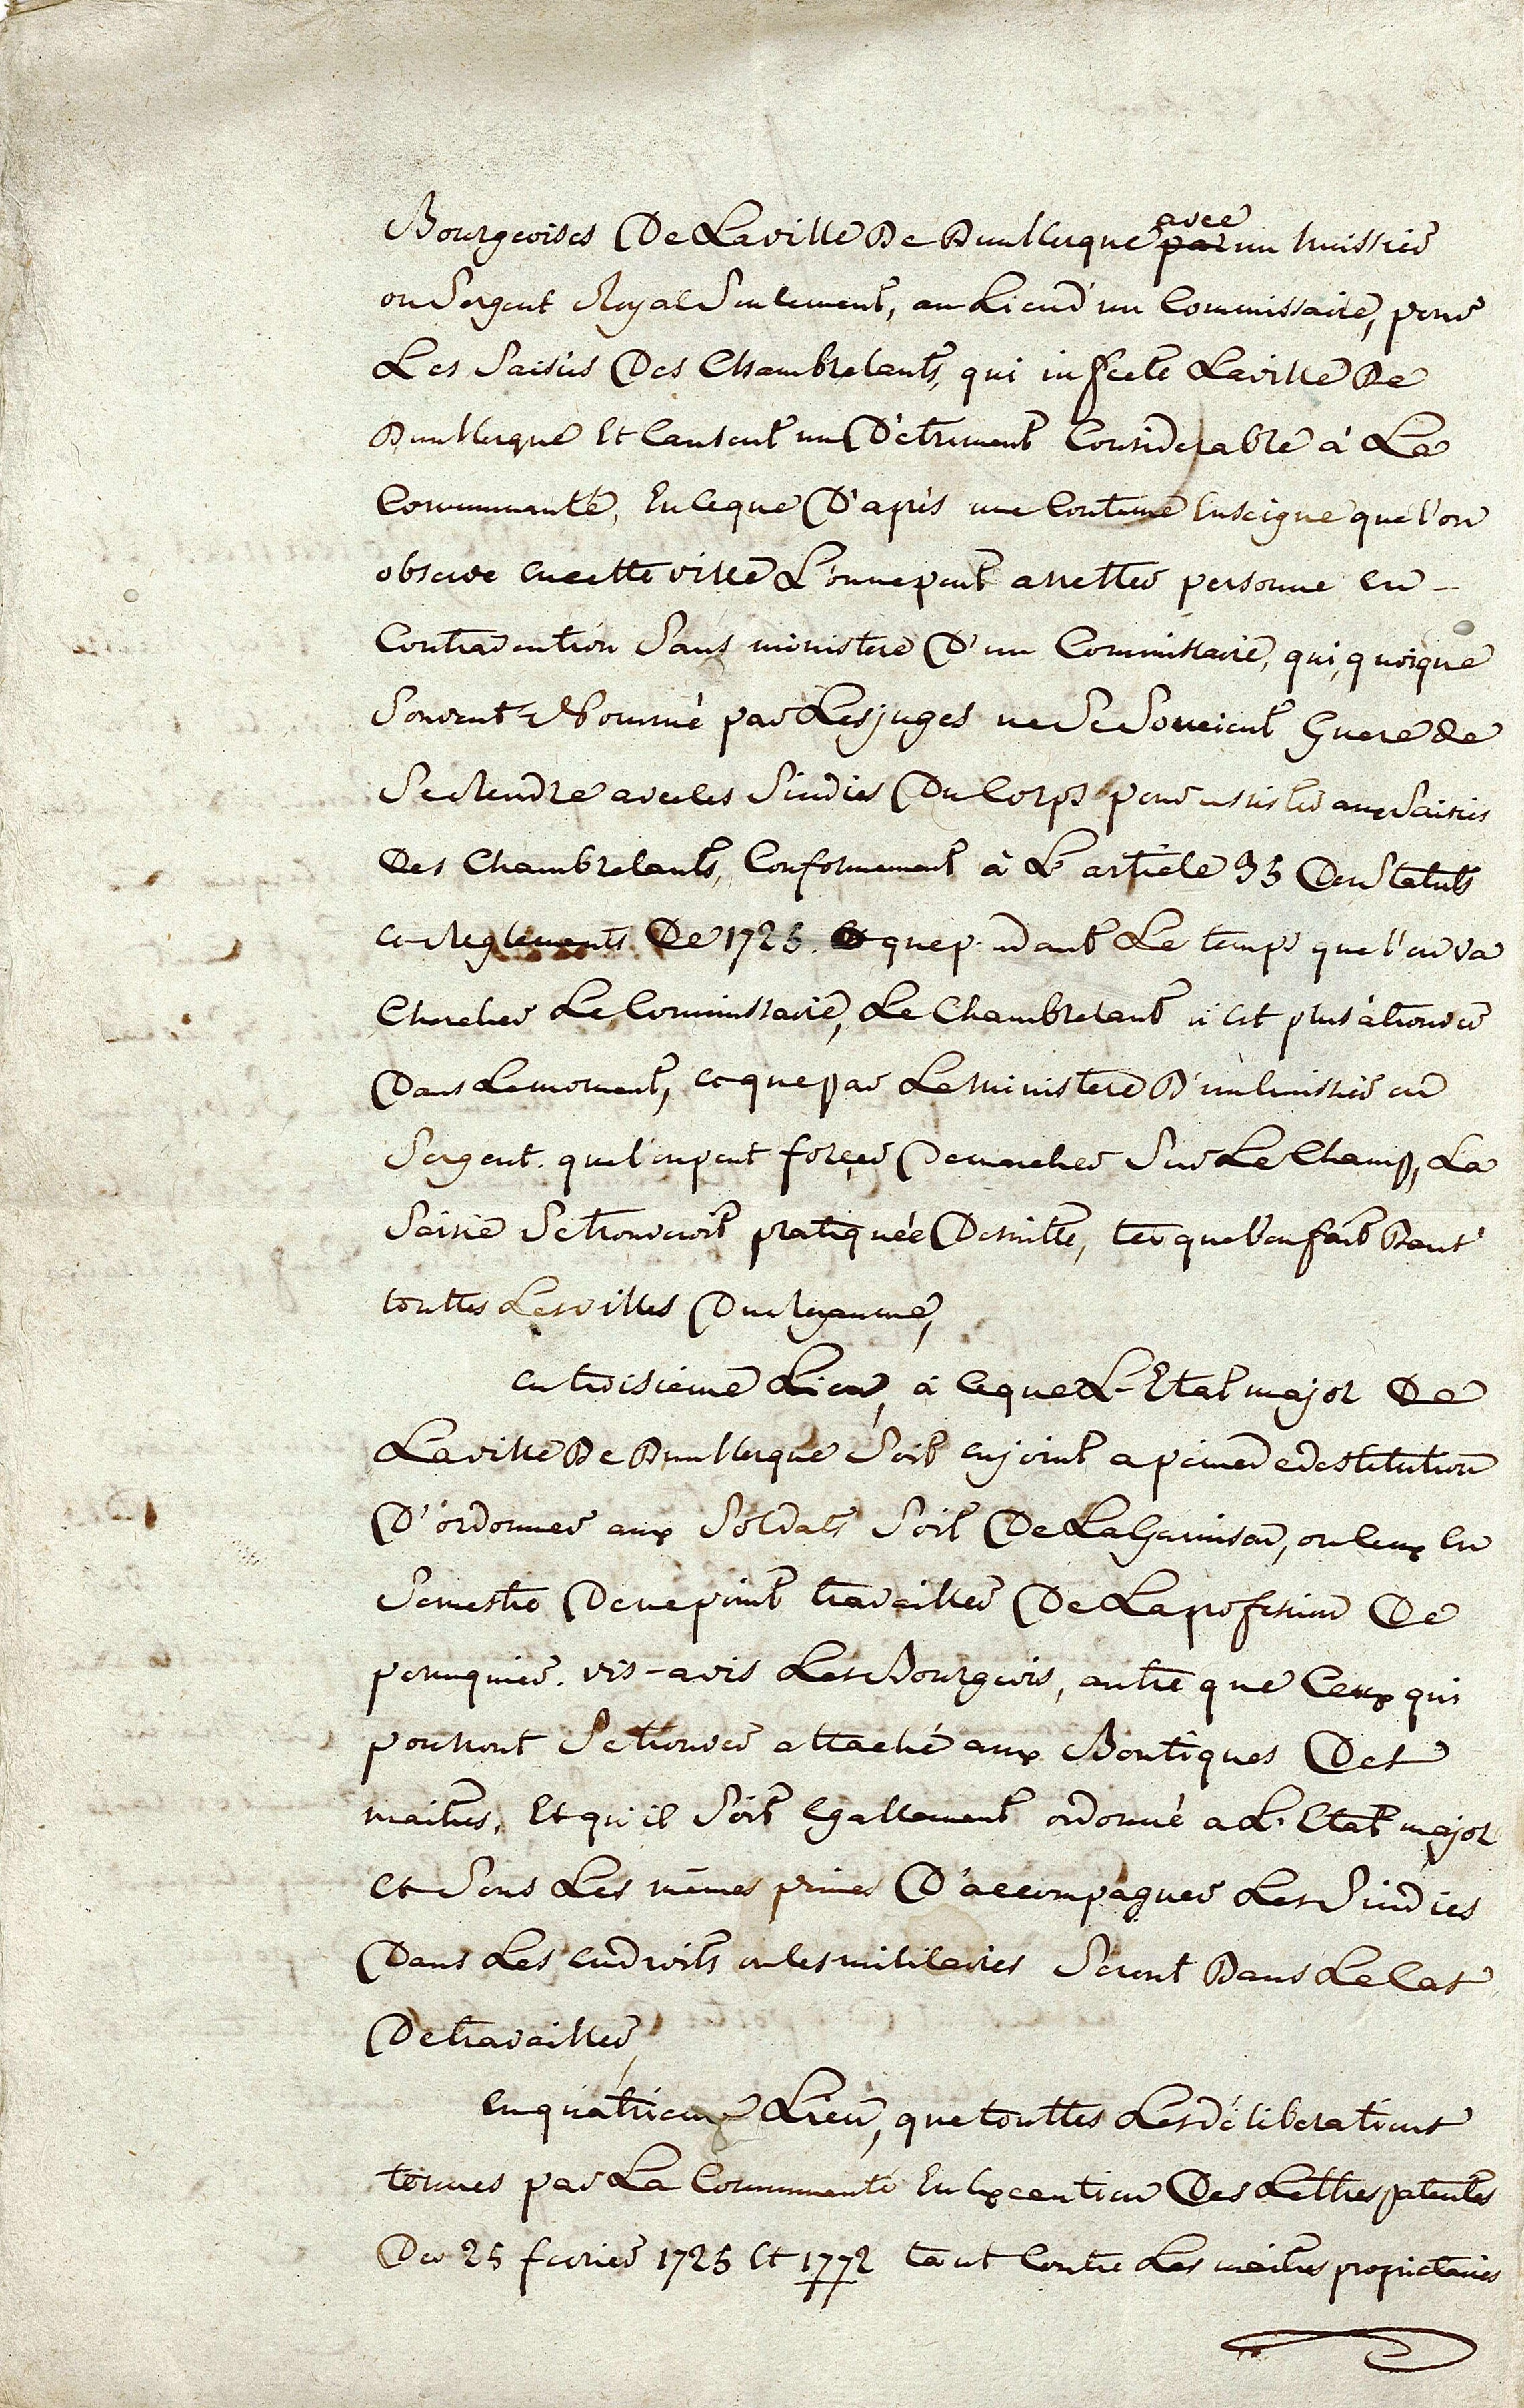 Bourgeoises De Laville De Dunkerque avec par un huissier
ou Sergent Royal Seulement, au Lieu d'un Commissaire, pour
Les Saisies Des Chambrelants, qui infecte Laville De
Dunkerque Et Causent un Détriment Considerable à La
Communauté, En ceque D'après une Coutume Enseigne que l'on
observe en cette ville L'on ne peut arretter personne en -
Contravention Sans ministere D'un Commissaire, qui, quoique
Souvent Nommé par Les juges ne Se Soucient Guere de
Se Rendre avec les Sindics Du Corps pour assister aux Saisies
Des Chambrelants, Conformement à L'article 35 Des Statuts
et Reglements De 1725. et que pendant Le temps que l'on va
Chercher Le Commissaire, Le Chambrelant n'est plus à trouver
Dans Le moment, et que par Le Ministere D'un huissier ou
Sergent. que l'on peut forçer De marcher Sur Le Champ, La
Saisie Se trouveroit pratiquée De suitte, tel que l'on fait Dans
touttes Les villes Du Royaume,
en troisieme Lieu, à ce que L'Etat major De
Laville De Dunkerque Soit enjoint a peine de destitution
D'ordonner aux Soldats Soit De La Garnison, ou ceux En
Semestre De ne point travailler De La profession De
peruquier. vis-avis Les Bourgeois, autre que Ceux qui
pourront Se trouver attaché aux Boutiques Des
maitres, Et qu'il Soit Egallement ordonné a L'Etat major
et Sous Les mêmes peines D'accompagner Les Sindics
Dans Les endroits ou les militaires Seront Dans Le Cas
De travailler,
En quatrieme Lieu, que touttes Les déliberations
tenues par La Communauté En Execution Des Lettres patentes
Du 25 fevrier 1725 Et 1772 tant Contre Les maitres proprietaires